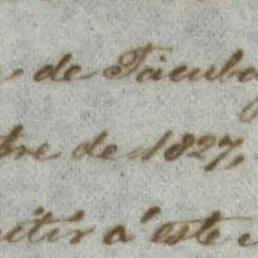 de Tacuba
bre de 1827,
itir á este